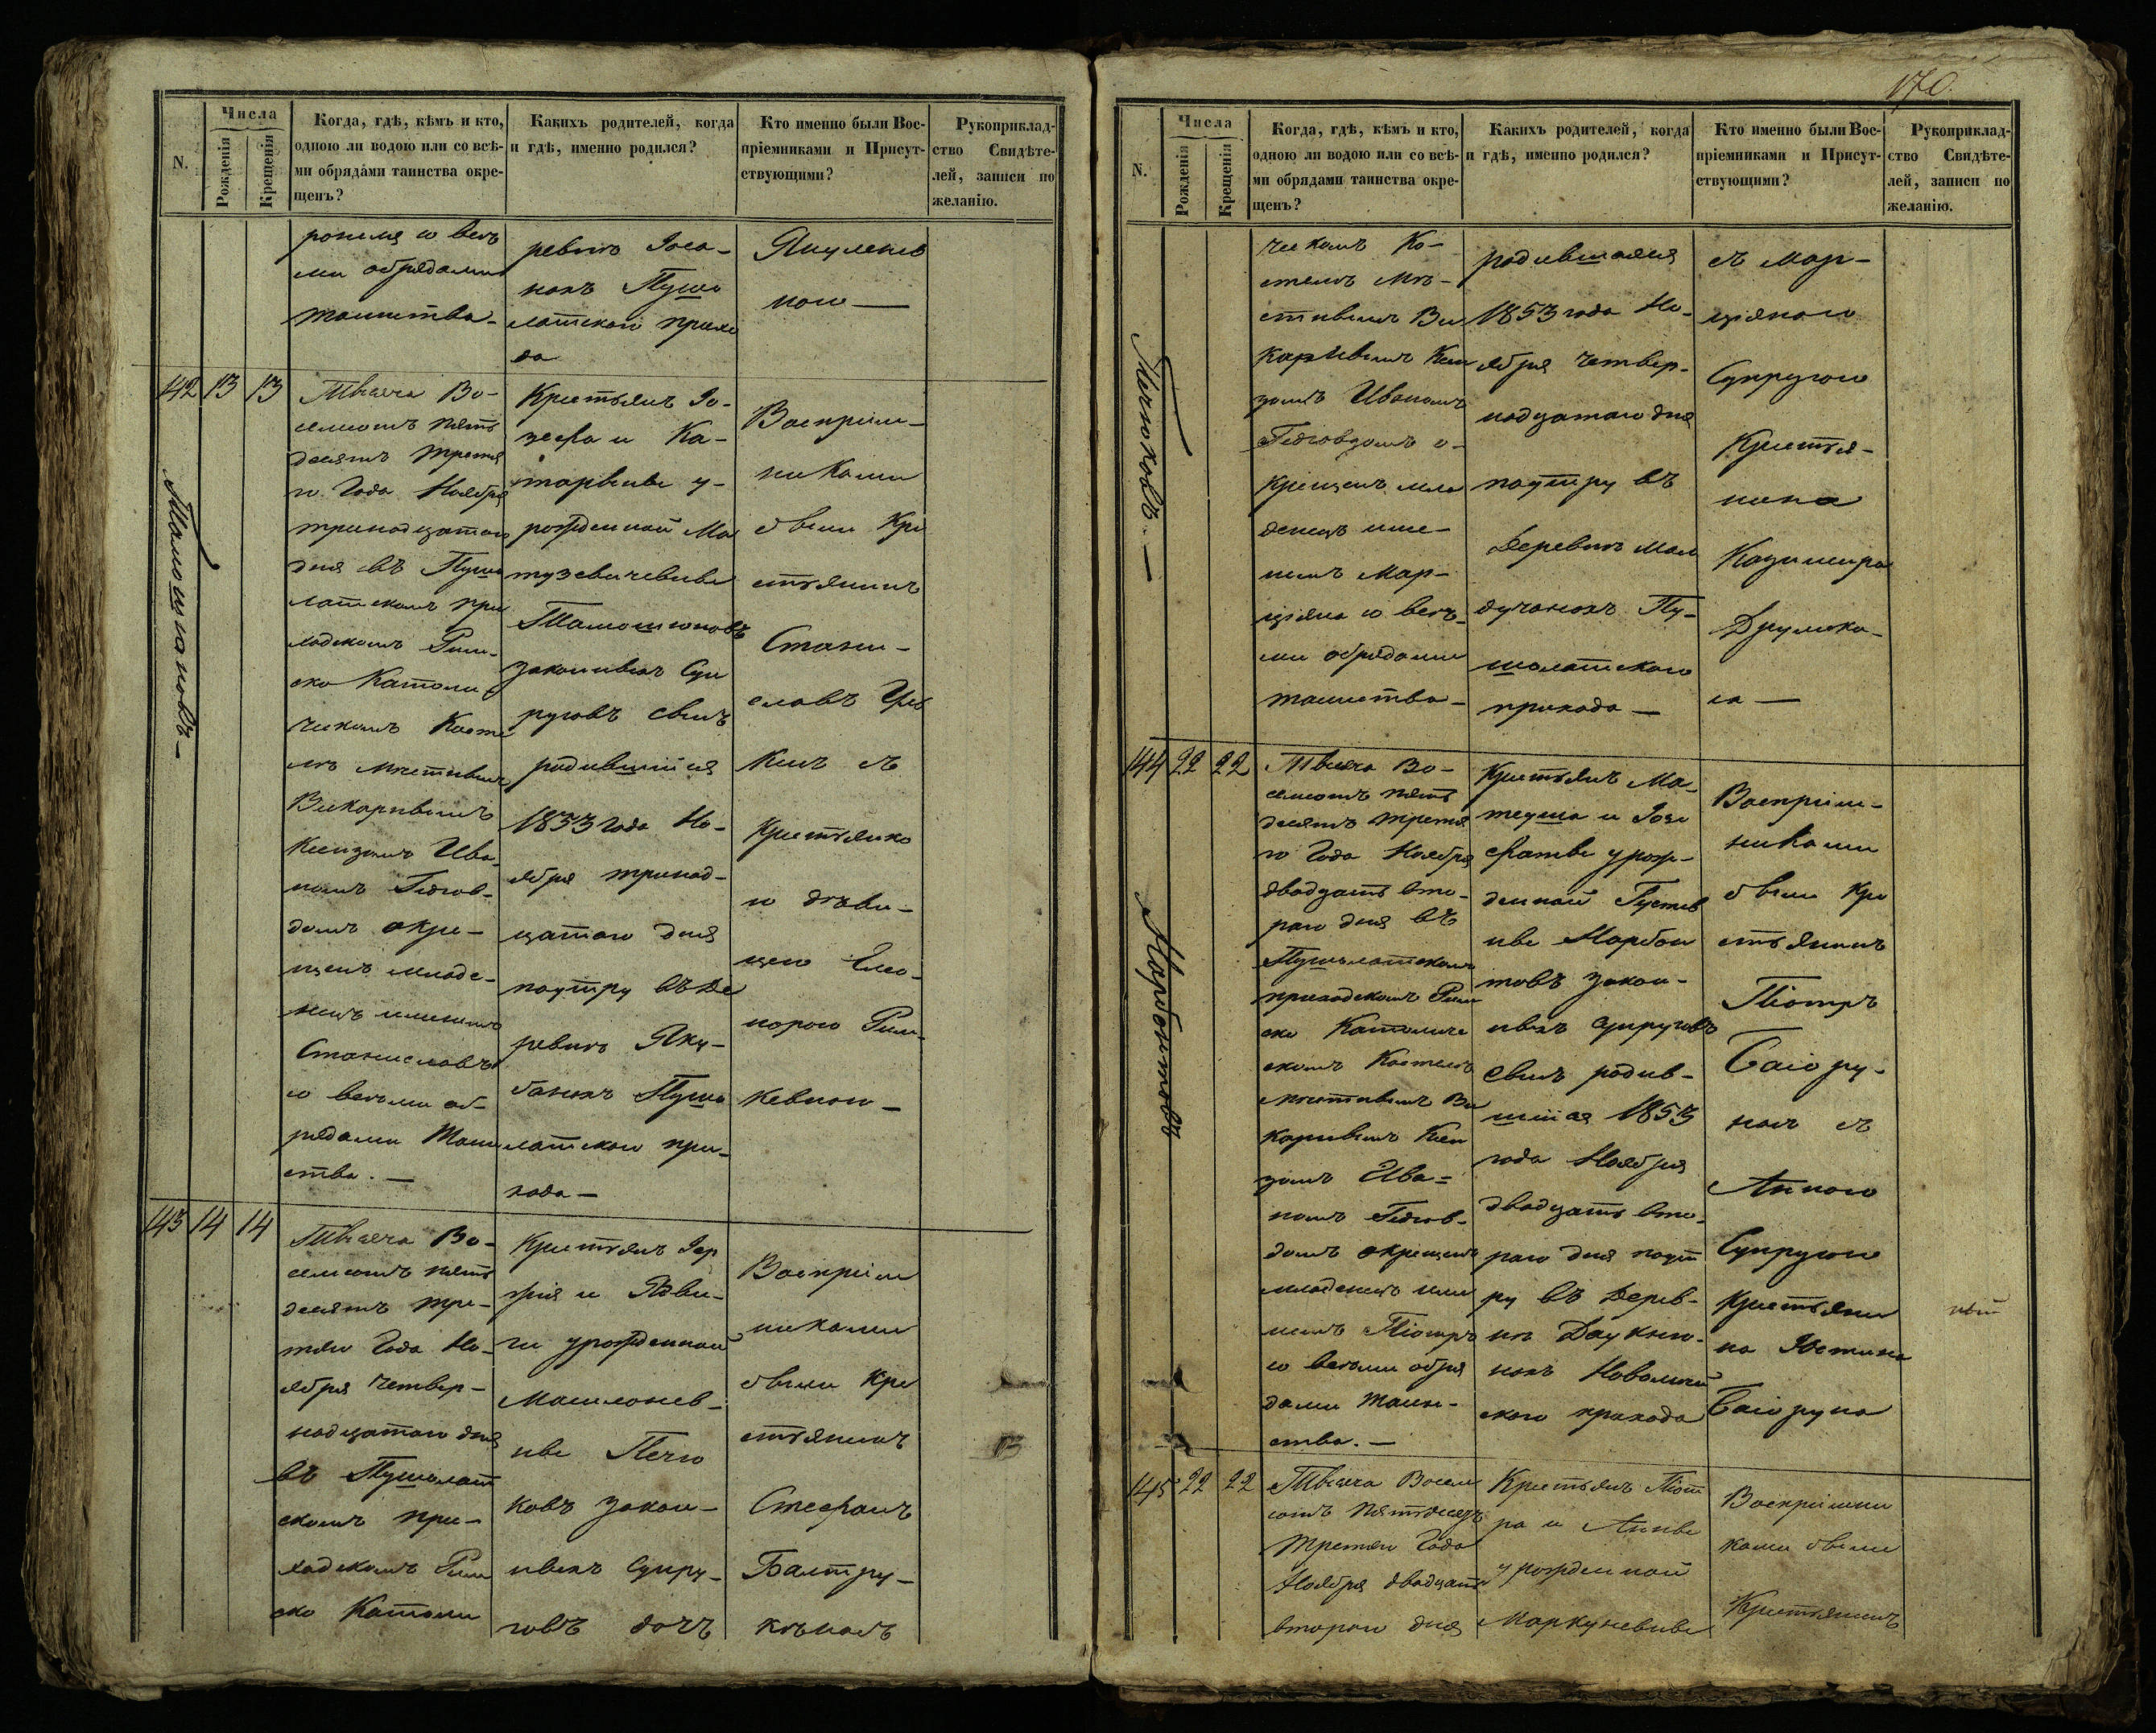 170.
N.
Числа
Рожденія
Крещенія
Когда, гдѣ, кѣмъ и кто,
одною ли водою или со всѣ-
ми обрядами таинства окре-
щенъ?
Какихъ родителей, когда
и гдѣ, именно родился?
Кто именно были Вос-
пріемниками и Присут-
ствующими?
Рукоприклад-
ство Свидѣте-
лей, записи по
желанію.
ми обрядами
таинства-
ревнѣ
нахъ Пуша
латскаго прихо
да
142 13 13
Тамошіановъ-
Тысяча Во-
семсотъ пять
десятъ третя
го Года Ноября
тринадцатаго
дня въ Пуша
латскомъ при
ходскомъ Рим-
ско Католи
ческомъ Косте
лѣ мѣстнымъ
Викарнымъ
Ксендзомъ Ива-
номъ Гедгов-
домъ окре-
щенъ младе-
нецъ именемъ
Станиславъ
со всѣми об-
рядами Таин
ства. —
Крестьянъ Іо-
зефа и Ка-
тарыны у-
рожденной Ма
тузевичевны
Тамошюновъ
законныхъ Суп
руговъ сынъ
родившійся
1853 года Но-
ября тринад-
цатаго дня
поутру въ Де
ревнѣ Яку-
банахъ Пуша
латскаго при-
хода —
Воспріем-
никами
были Кре
стьянинъ
Стани-
славъ
съ
Крестьянко
ю дѣви-
цею Элео-
норою Рим-
кевною —
143 14 14
Тысяча Во-
семсотъ пять
десятъ тре-
тяго Года Но-
ября четвер-
надцатаго дня
въ Пушалат
скомъ при-
ходскомъ Рим
ско Католи
Крестьянъ Іер
жія и Ядви-
ги урожденной
Мацилонев-
ны Печю
ковъ закон-
ныхъ Супру-
говъ дочь
Воспріем
никами
были Кре
стьянинъ
Стефанъ
Балтру-
кѣнасъ
N.
Числа
Рожденія
Крещенія
Когда, гдѣ, кѣмъ и кто,
одною ли водою или со всѣ-
ми обрядами таинства окре-
щенъ?
Какихъ родителей, когда
и гдѣ, именно родился?
Кто именно были Вос-
пріемниками и Присут-
ствующими?
Рукоприклад-
ство Свидѣте-
лей, записи по
желанію.
Печюковъ. —
ческомъ Ко-
стелѣ мѣ-
стнымъ Ви
карнымъ Ксен
дзомъ Иваномъ
Гедговдомъ о-
крещенъ мла
денецъ име-
немъ Мар-
ціяна со всѣ-
ми обрядами
таинства-
родившаяся
1853 года Но-
ября четвер-
надцатаго дня
поутру въ
Деревнѣ Мал
дучанахъ Пу-
шалатскаго
прихода —
съ Мар-
ціяною
Супругою
Крестья-
нина
Казимира
Друмска-
са —
144 22 22
Нарбутовъ
Тысяча Во-
семсотъ пять
десятъ третя
го Года Ноября
двадцать вто-
раго дня въ
Пушалатскомъ
приходскомъ Рим
ско Католиче
скомъ Костелѣ
мѣстнымъ Ви
карнымъ Ксен
дзомъ Ива-
номъ Гедгов-
домъ окрещенъ
младенецъ име
немъ Піотръ
со всѣми обря
дами таин-
ства. —
Крестьянъ Ма-
теуша и Іозе
фаты урож-
денной
ны Нарбу
товъ закон-
ныхъ Супруговъ
Сынъ родив-
шійся 1853
года Ноября
двадцать вто-
раго дня поут
ру въ Дерев-
нѣ Даукню-
нахъ Новомѣй
скаго прихода
Воспріем-
никами
были Кре
стьянинъ
Піотръ
Баіору-
насъ съ
Анною
Супругою
Крестьяни
на Юстина
Баіоруна
145 22 22
Тысяча Восем
сотъ Пятьдесятъ
Третяго Года
Ноября двадцать
втораго дня
Крестьянъ Піот
ра и Анны
урожденной
Маркуневны
Воспріемни
ками были
Крестьянинъ